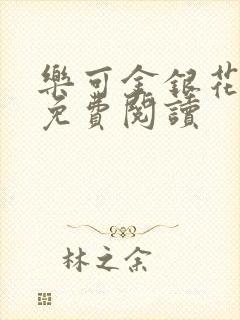 樂可金銀花
免費閱讀
林之余